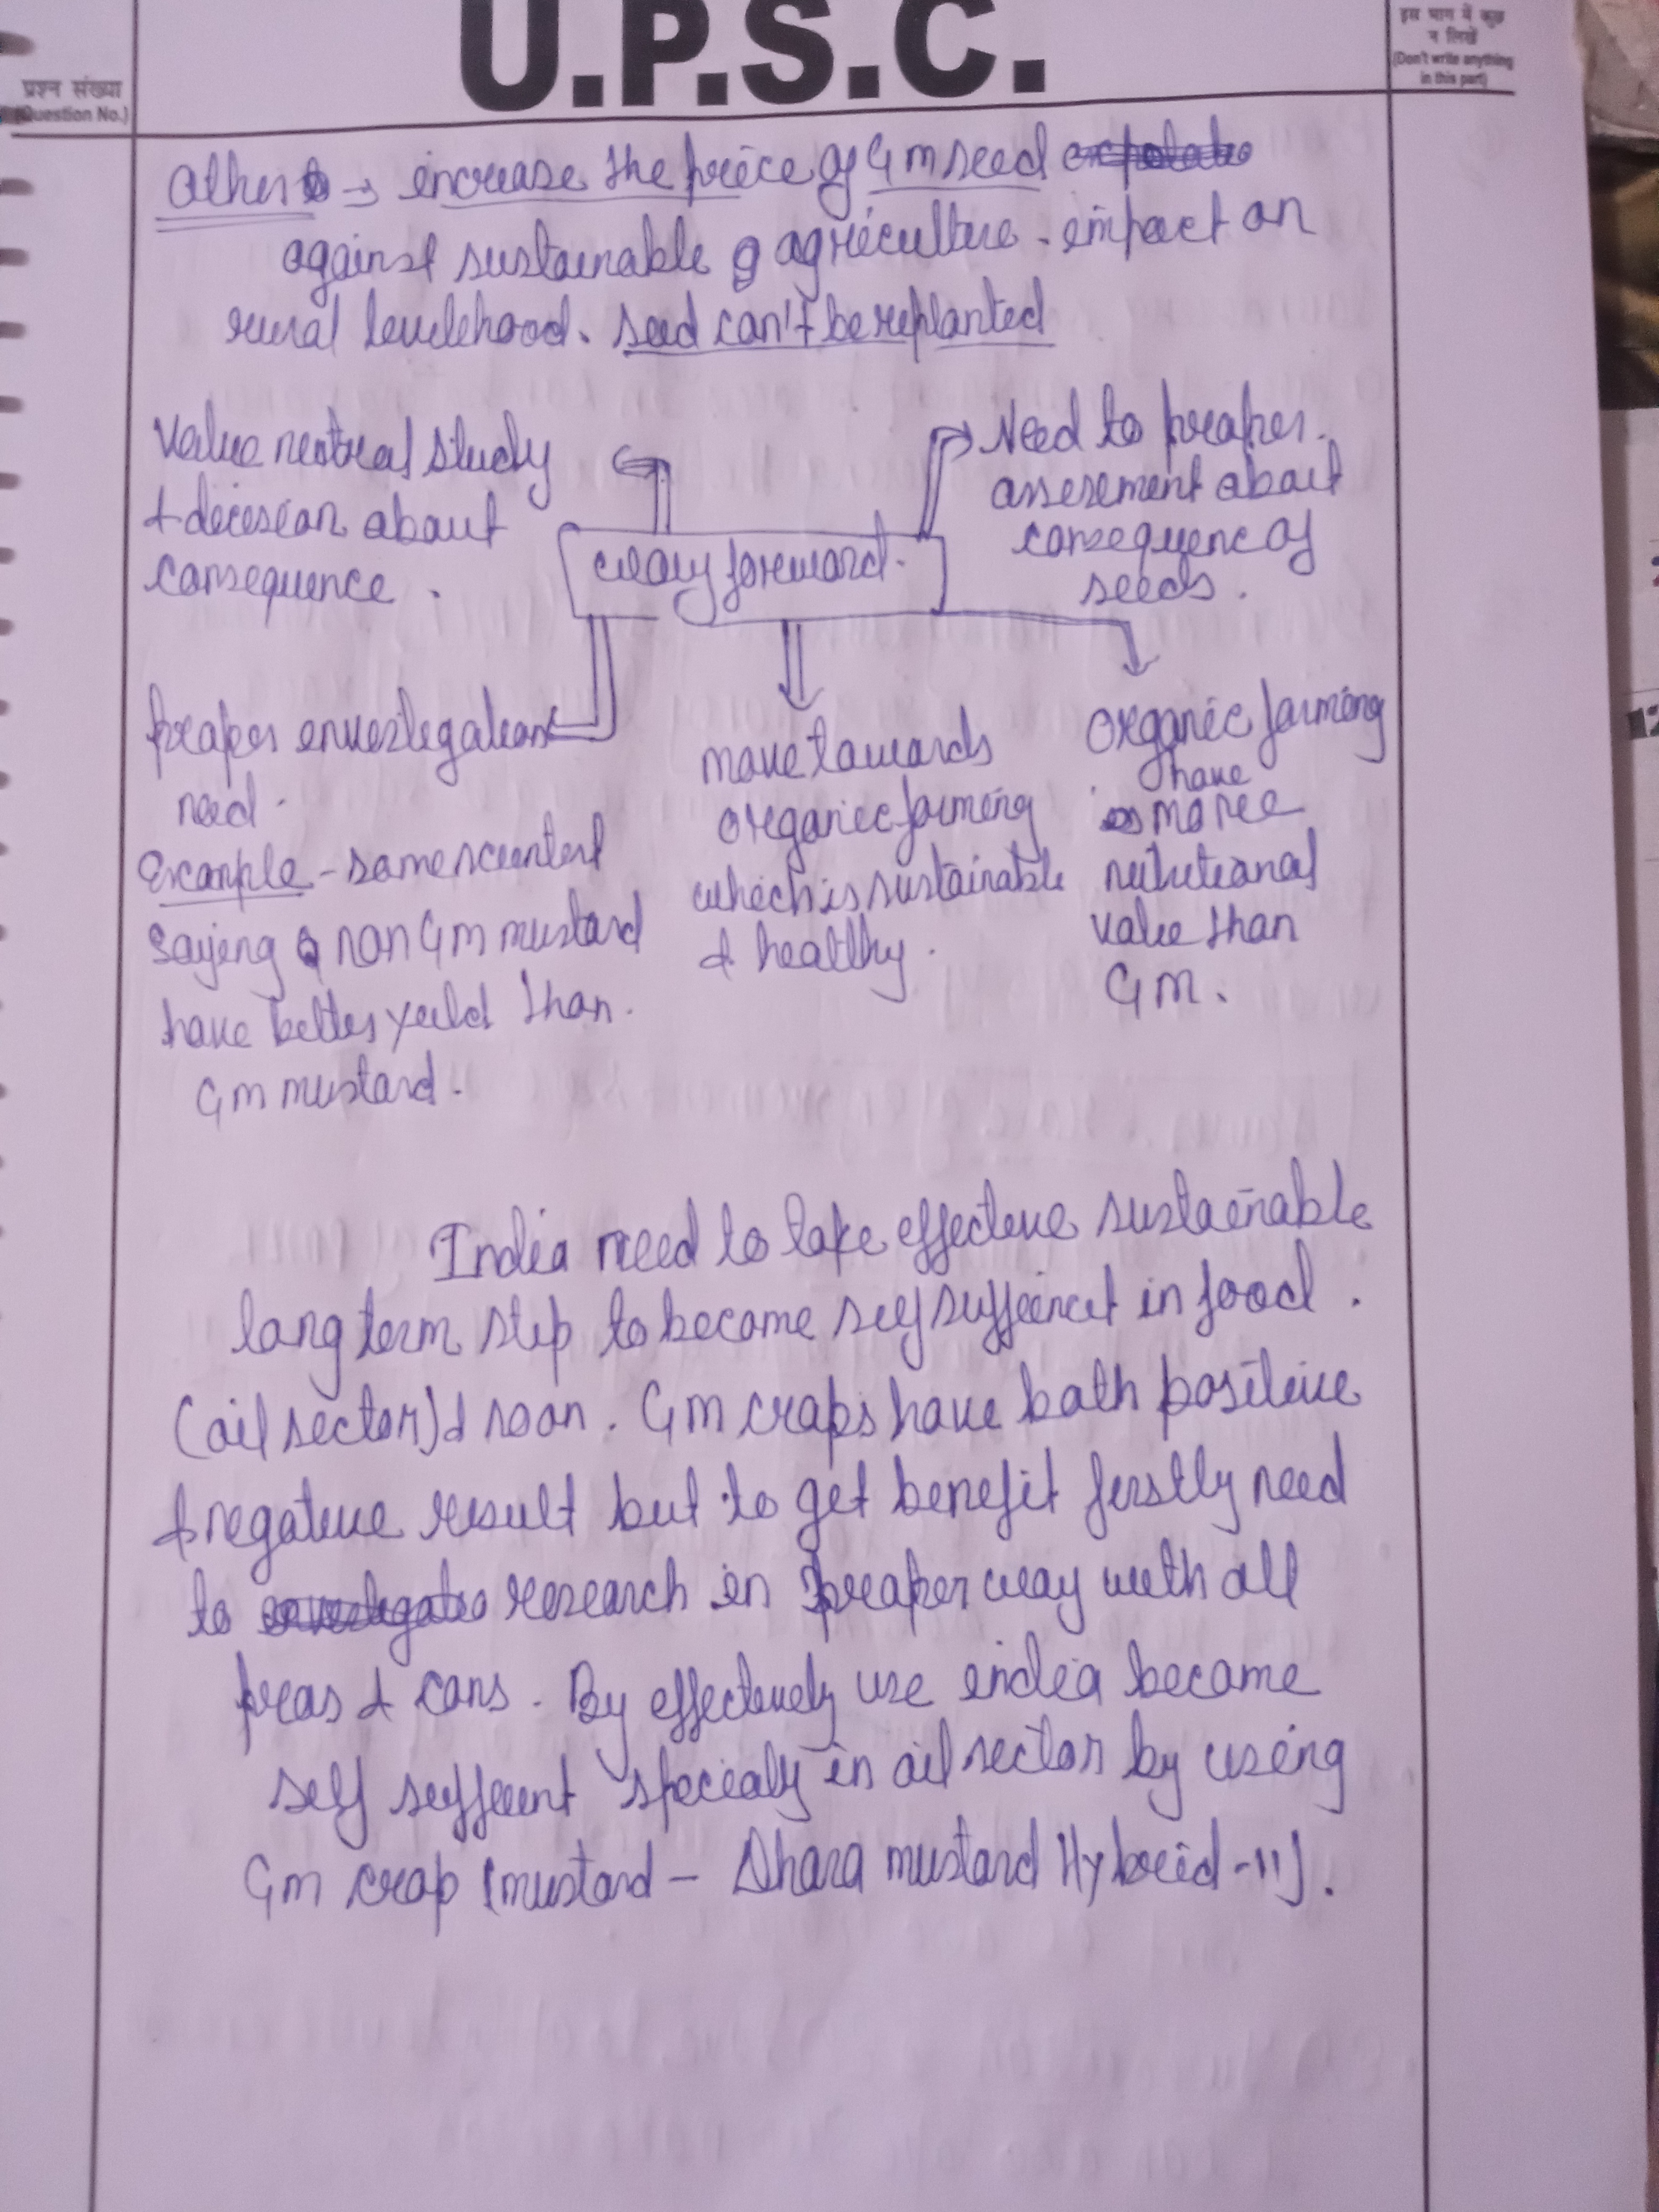 U.P.S.C.
प्रश्न संख्या
(Question No.)
इस भाग में कुछ
न लिखें
(Don't write anything
in this part)
Others → increase the price of GM seed
against sustainable agriculture - impact on
rural livelihood. seed can't be replanted
Value neutral study
& decision about
consequence.
Need to proper
assesement about
consequenc of
seeds.
way foreward.
proper investigation
need.
Example - some scientist
saying non GM mustard
have better yeild than.
GM mustard.
move towards
organic farming
which is sustainable
& healthy.
organic farming
have
more
nutritional
value than
GM.
India need to take effective sustainable
long term step to become self sufficient in food.
(oil sector) & soon. GM crops have both positive
& negative result but to get benefit firstly need
to research in proper way with all
pros & cons. By effectively use india become
self sufficent specialy in oil sector by using
GM crop (mustard - Dhara mustard Hybrid - 11).